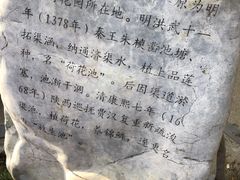 花园所在地。明洪武十一
年(1378年)秦王朱樉凿池塘,
拓渠涵,纳通济渠水,植上品莲
种,名“荷花池”。后因渠道淤
塞,池渐干涸。清康熙七年(16
68年)陕西巡抚贾汉复重新疏浚
渠池,植荷花,养锦鳞,